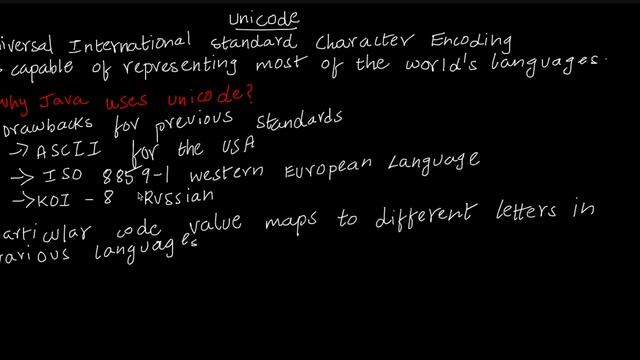 Unicode
niversal International Standard Character Encoding
capable of representing most of the world's languages.
Why Java uses unicode?
Drawbacks for previous standards
→ ASCII for the USA
→ ISO 8859-1 western European Language
→ KOI - 8 Russian
articular code value maps to different letters in
various languages